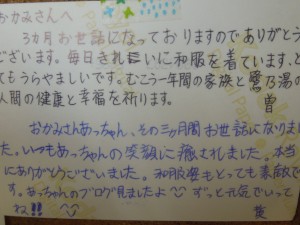 おかみさんへ
3カ月お世話になっておりますのでありがとう
ございます。毎日きれいに和服を着ています、と
てもうらやましいです。むこう一年間の家族と鷺乃湯の
人間の健康と幸福を祈ります。
曽
おかみさんあっちゃん、その三ヶ月間お世話になりまし
た。いつもあっちゃんの笑顔に癒されました。本当
にありがとうございました。和服姿もとっても素敵で
す。あっちゃんのブログ見ましたよ ずっと元気でいって
ね!!